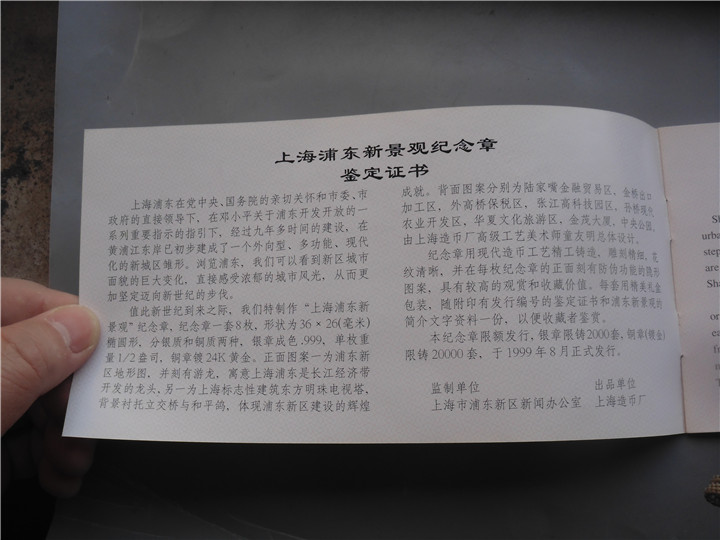 上海浦东新景观纪念章
鉴定证书
上海浦东在党中央、国务院的亲切关怀和市委、市
政府的直接领导下，在邓小平关于浦东开发开放的一
系列重要指示的指引下，经过九年多时间的建设，在
黄浦江东岸已初步建成了一个外向型、多功能、现代
化的新城区雏形。浏览浦东，我们可以看到新区城市
面貌的巨大变化，直接感受浓郁的城市风光，从而更
加坚定迈向新世纪的步伐。
值此新世纪到来之际，我们特制作“上海浦东新
景观”纪念章，纪念章一套8枚，形状为36×26(毫米)
椭圆形，分银质和铜质两种，银章成色.999，单枚重
量1/2盎司，铜章镀24K黄金。正面图案一为浦东新
区地形图，并刻有游龙，寓意上海浦东是长江经济带
开发的龙头，另一为上海标志性建筑东方明珠电视塔，
背景衬托立交桥与和平鸽，体现浦东新区建设的辉煌
成就。背面图案分别为陆家嘴金融贸易区，金桥出口
加工区，外高桥保税区，张江高科技园区，孙桥现代
农业开发区，华夏文化旅游区，金茂大厦，中央公园，
由上海造币厂高级工艺美术师童友明总体设计。
纪念章用现代造币工艺精工铸造，雕刻精细，花
纹清晰，并在每枚纪念章的正面刻有防伪功能的隐形
图案，具有较高的观赏和收藏价值。每套用精美礼盒
包装，随附印有发行编号的鉴定证书和浦东新景观的
简介文字资料一份，以便收藏者鉴赏。
本纪念章限额发行，银章限铸2000套，铜章(镀金)
限铸20000套，于1999年8月正式发行。
监制单位 出品单位
上海市浦东新区新闻办公室 上海造币厂